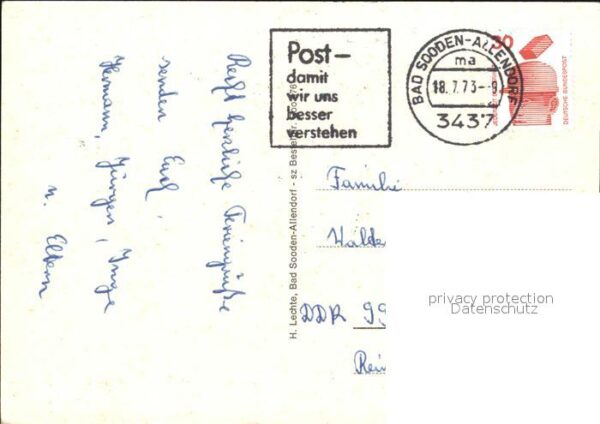 Recht herzliche Feriengrüße
senden Euch
Hermann, Jürgen, Inge
u. Eltern
H. Lechte, Bad Sooden-Allendorf - sz Bestell
Post–
damit
wir uns
besser
verstehen
BAD SOODEN-ALLENDORF
ma
18.7.73-9
3437
30
DEUTSCHE BUNDESPOST
Familie
Walde
DDR 99
Rei
privacy protection
Datenschutz